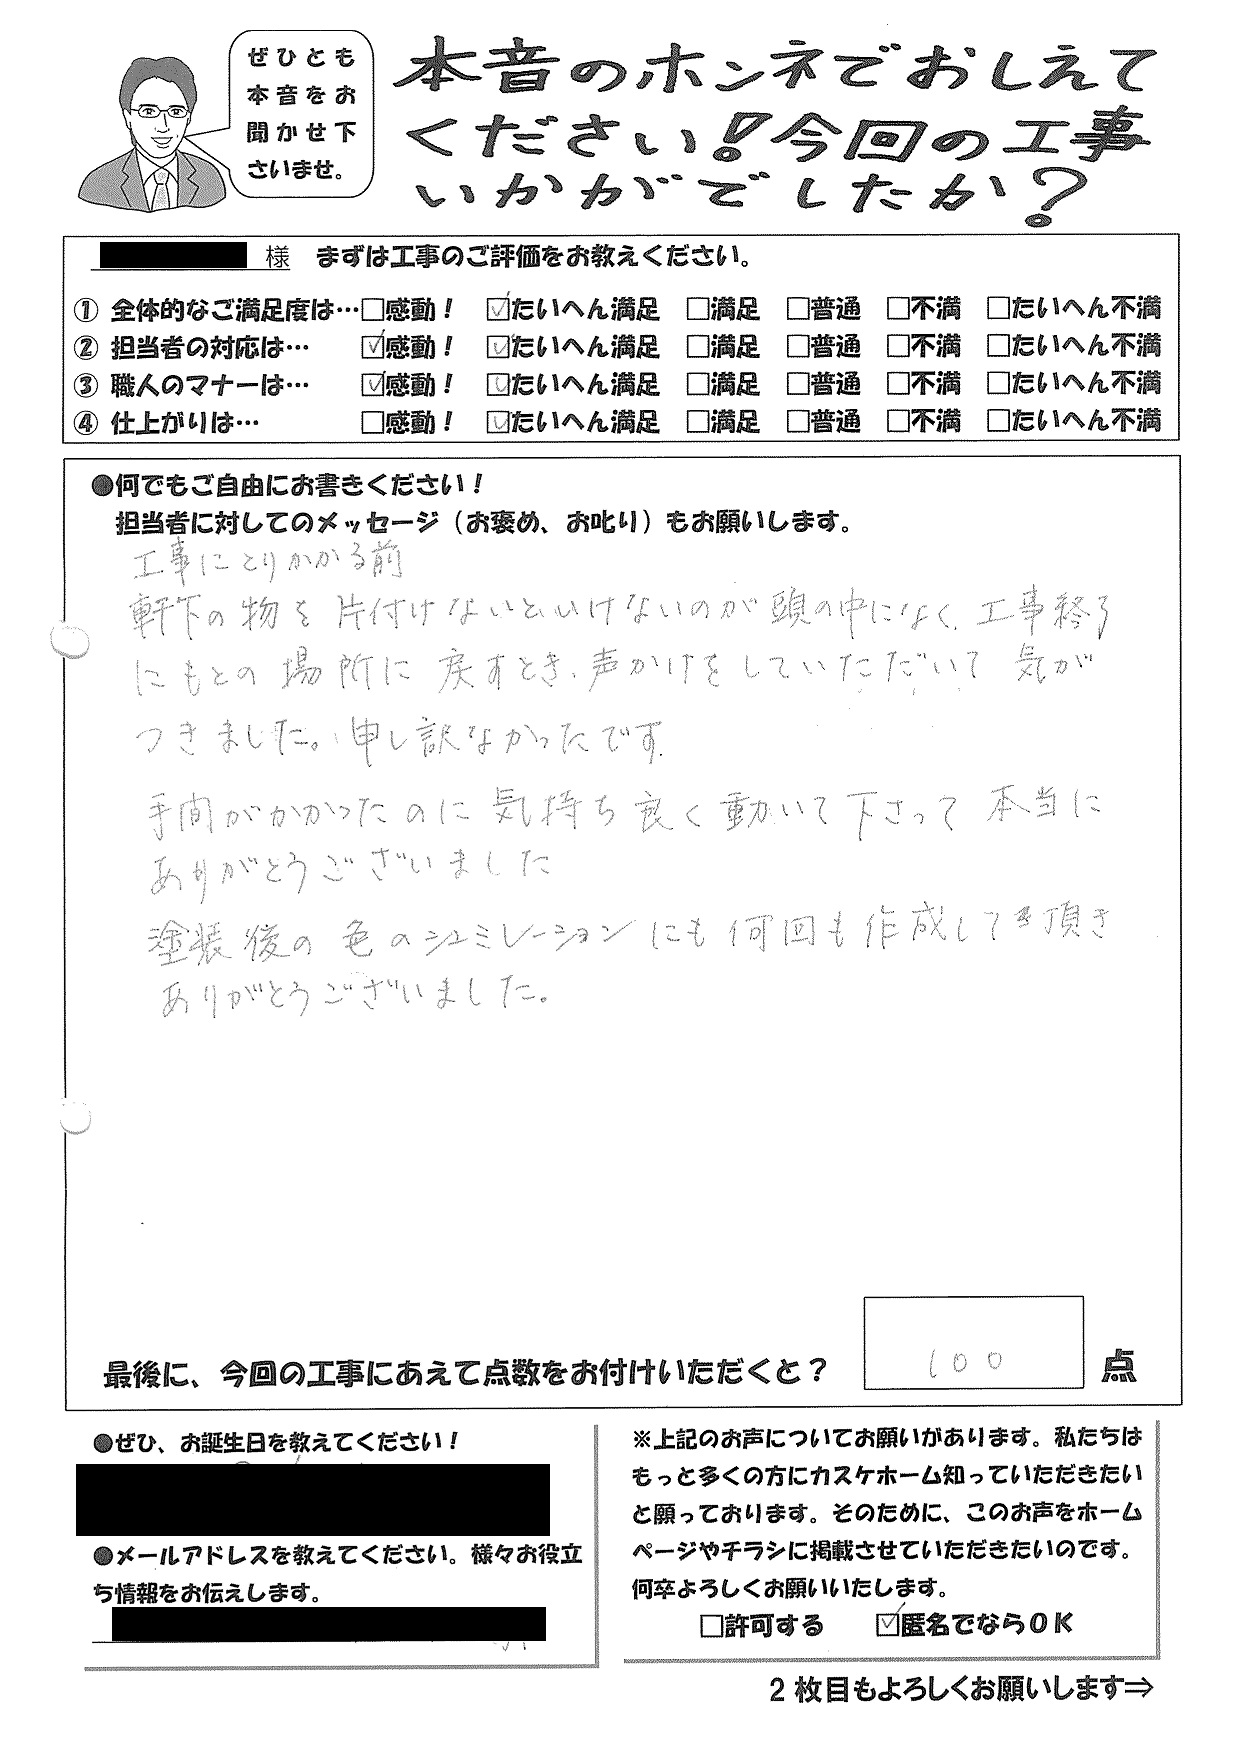 ぜひとも
本音をお
聞かせ下
さいませ。
本音のホンネでおしえて
ください!今回の工事
いかがでしたか?
様 まずは工事のご評価をお教えください。
① 全体的なご満足度は…□感動! ☑たいへん満足 □満足 □普通 □不満 □たいへん不満
② 担当者の対応は… ☑感動! ☑たいへん満足 □満足 □普通 □不満 □たいへん不満
③ 職人のマナーは… ☑感動! ☑たいへん満足 □満足 □普通 □不満 □たいへん不満
④ 仕上がりは… □感動! ☑たいへん満足 □満足 □普通 □不満 □たいへん不満
●何でもご自由にお書きください!
担当者に対してのメッセージ(お褒め、お叱り)もお願いします。
工事にとりかかる前
軒下の物を片付けないといけないのが頭の中になく、工事終了
にもとの場所に戻すとき、声かけをしていただいて気が
つきました。申し訳なかったです。
手間がかかったのに気持ち良く動いて下さって本当に
ありがとうございました
塗装後の色のシュミレーションにも何回も作成して頂き
ありがとうございました。
最後に、今回の工事にあえて点数をお付けいただくと? 100 点
●ぜひ、お誕生日を教えてください!
●メールアドレスを教えてください。様々お役立
ち情報をお伝えします。
※上記のお声についてお願いがあります。私たちは
もっと多くの方にカスケホーム知っていただきたい
と願っております。そのために、このお声をホーム
ページやチラシに掲載させていただきたいのです。
何卒よろしくお願いいたします。
□許可する ☑匿名でならOK
2枚目もよろしくお願いします⇒